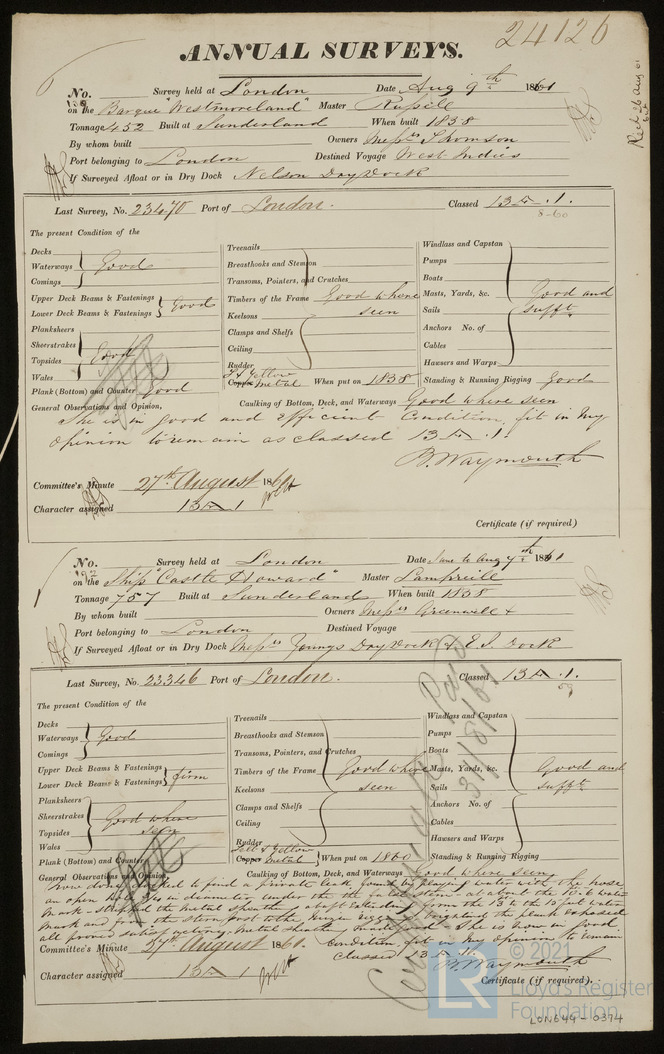 24126
ANNUAL SURVEYS.
Recd 26 Aug 61
No. 139 Survey held at London Date Aug 9th 1861
on the Barque "Westmoreland" Master
Tonnage 452 Built at Sunderland When built 1838
By whom built Owners Messrs Thomson
Port belonging to London Destined Voyage West Indies
If Surveyed Afloat or in Dry Dock Nelson Dry Dock
Last Survey, No. 23470 Port of London. Classed 13 A .1.
8-60
The present Condition of the
Decks
Waterways Good
Comings
Upper Deck Beams & Fastenings
Lower Deck Beams & Fastenings Good
Planksheers
Sheerstrakes
Topsides Good
Wales
Plank (Bottom) and Counter Good
Treenails
Breasthooks and Stemson
Transoms, Pointers, and Crutches
Timbers of the Frame Good where
Keelsons seen
Clamps and Shelfs
Ceiling
Rudder
Copper Yellow Metal When put on 1858
Windlass and Capstan
Pumps
Boats
Masts, Yards, &c. Good and
Sails sufft
Anchors No. of
Cables
Hawsers and Warps
Standing & Running Rigging Good
General Observations and Opinion, Caulking of Bottom, Deck, and Waterways Good where seen
She is in good and efficient condition, fit in my
opinion to remain as classed 13 A .1.
B. Waymouth
Committee's Minute 27th August 1861
Character assigned 13 A 1
Certificate (if required)
No. Survey held at London Date June to Aug 7th 1861
on the Ship "Castle Howard" Master
Tonnage 757 Built at Sunderland When built 1858
By whom built Owners Messrs Greenwell &
Port belonging to London Destined Voyage
If Surveyed Afloat or in Dry Dock Messrs Youngs Dry Dock & E. I. Dock
Last Survey, No. 23346 Port of London. Classed 13 A .1.
The present Condition of the
Decks
Waterways Good
Comings
Upper Deck Beams & Fastenings
Lower Deck Beams & Fastenings firm
Planksheers
Sheerstrakes Good where
Topsides seen
Wales
Plank (Bottom) and Counter
Treenails
Breasthooks and Stemson
Transoms, Pointers, and Crutches
Timbers of the Frame Good where
Keelsons seen
Clamps and Shelfs
Ceiling
Rudder
Copper Felt & Yellow Metal When put on 1860
Windlass and Capstan
Pumps
Boats
Masts, Yards, &c. Good and
Sails sufft
Anchors No. of
Cables
Hawsers and Warps
Standing & Running Rigging
General Observations and Opinion, Caulking of Bottom, Deck, and Waterways Good where seen
Now done, Docked to find a private leak, found by playing water with the hose
an open bolt hole in deadwood under the
mark - stripped the metal sheathing from the 13 to the 10 feet water
mark and from the stern post to the mizen rigging the plank exposed
all proved satisfactory, metal sheathing made good. She is now in good
condition, fit in my opinion to remain
classed 13 A .1.
B. Waymouth
Certificate Paid 31/8/61
Committee's Minute 27th August 1861.
Character assigned 13 A 1
Certificate (if required).
LR © 2021
Lloyd's Register
Foundation
LON644-0374